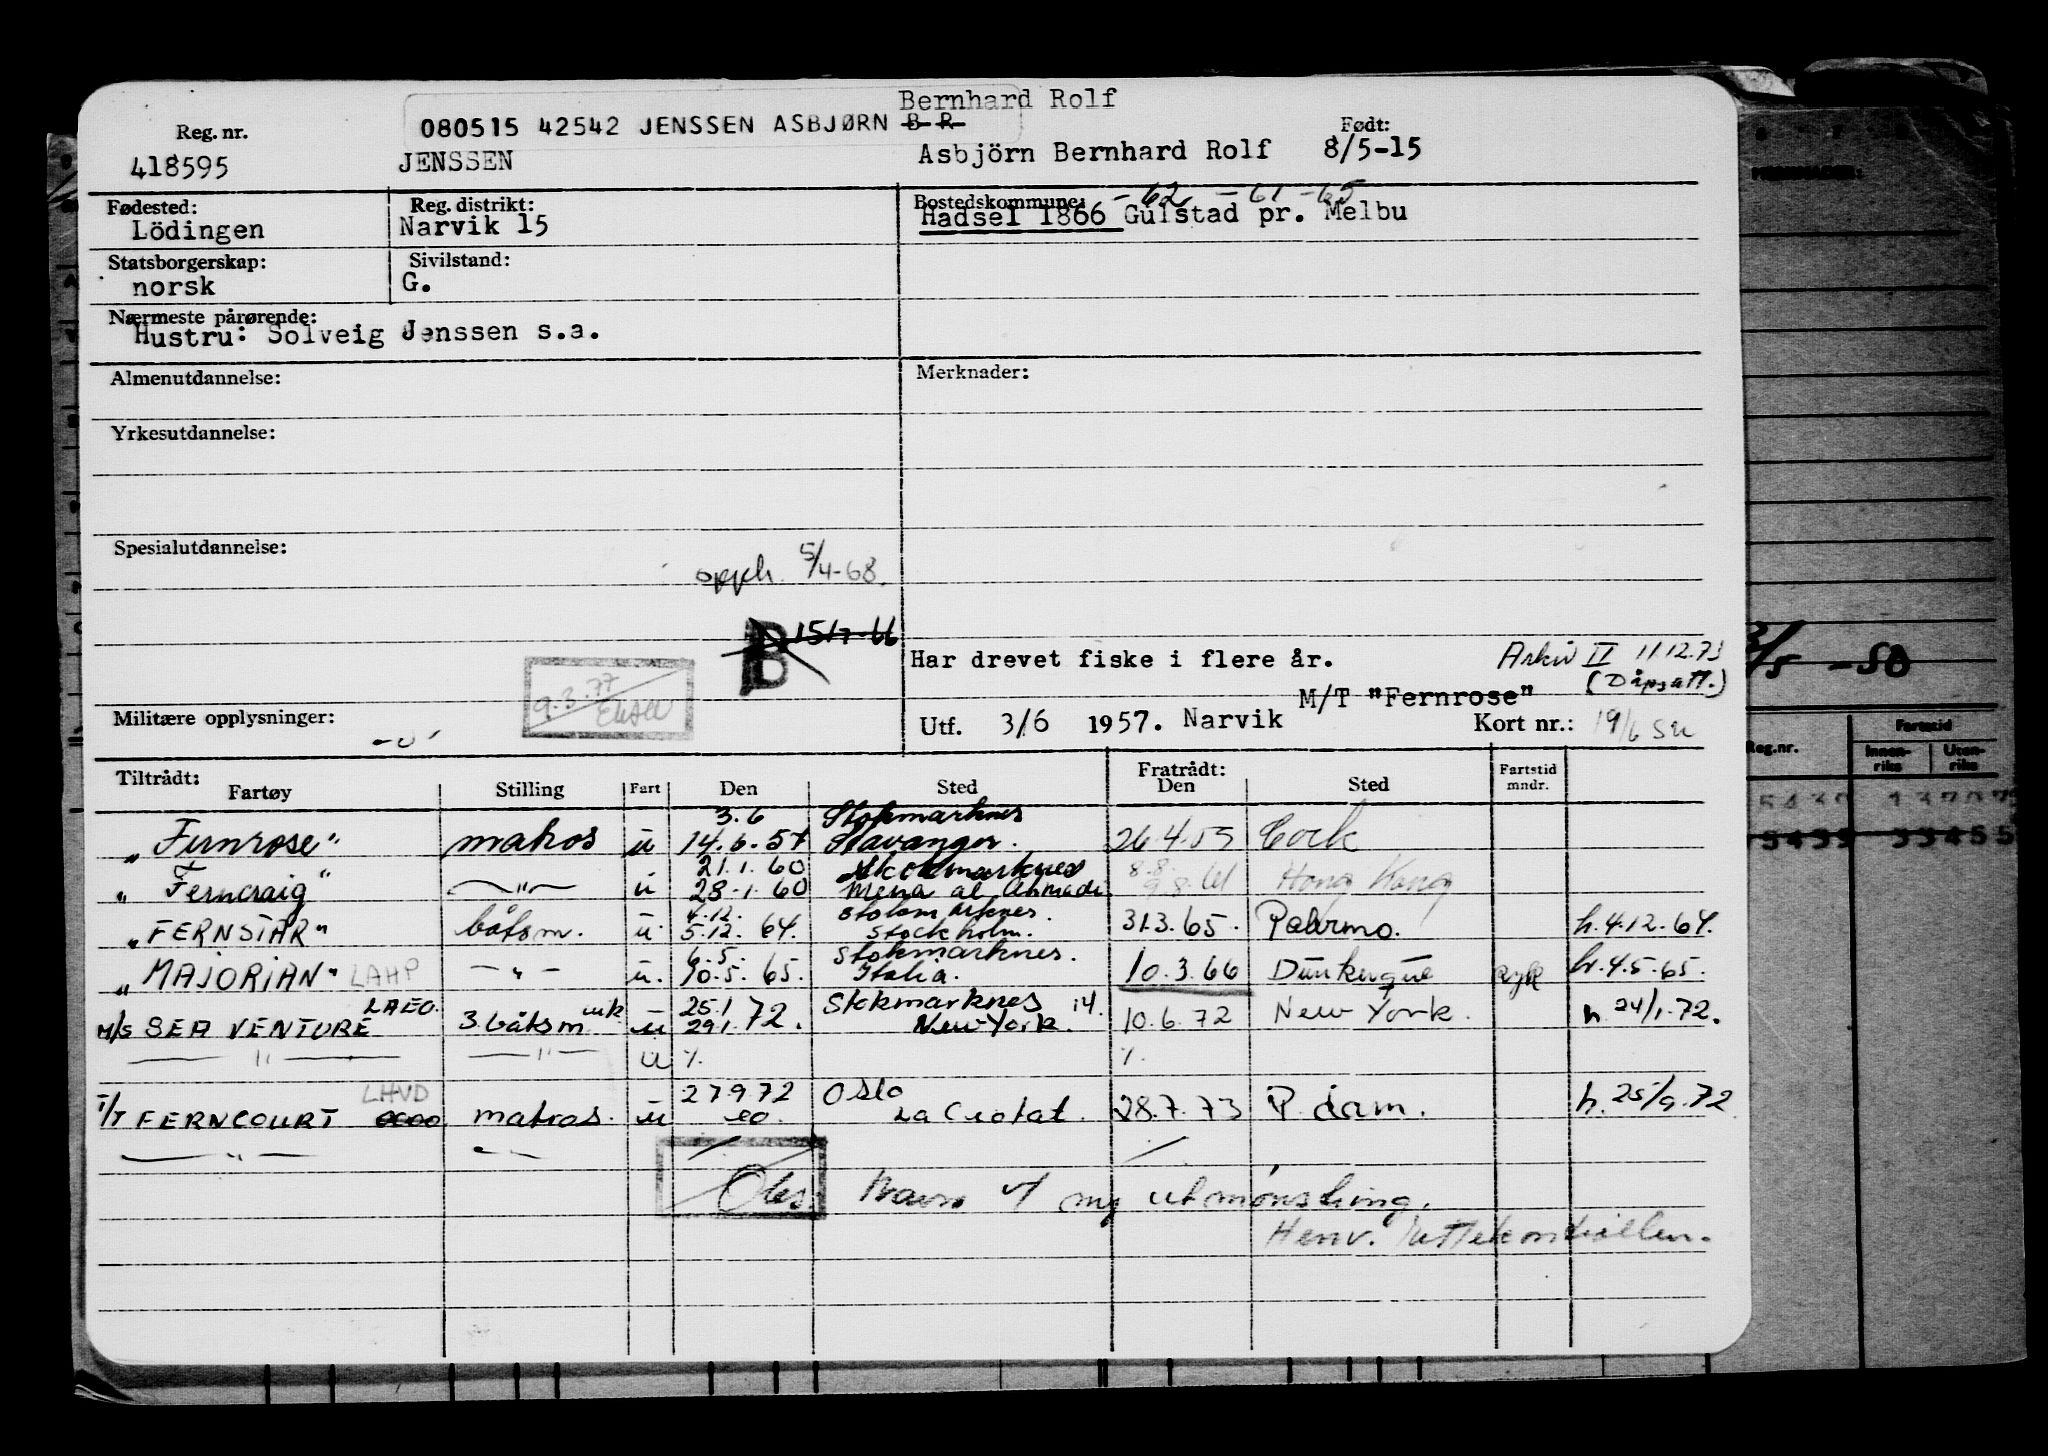 Bernhard Rolf
Reg. nr. 080515 42542 JENSSEN ASBJØRN B R Født:
418595 JENSSEN Asbjörn Bernhard Rolf 8/5-15
Fødested: Reg. distrikt: Bostedskommune: -62 -61 -65
Lödingen Narvik 15 Hadsel 1866 Gulstad pr. Melbu
Statsborgerskap: Sivilstand:
norsk G.
Nærmeste pårørende:
Hustru: Solveig Jenssen s.a.
Almenutdannelse: Merknader:
Yrkesutdannelse:
Spesialutdannelse:
opph. 5/4-68.
B 15/7-66
Har drevet fiske i flere år. Arkiv II 11.12.73
(Dåpsatt.)
9.3.77
M/T "Fernrose"
Militære opplysninger: Utf. 3/6 1957. Narvik Kort nr.: 19/6
Tiltrådt: Fratrådt:
Fartøy Stilling Fart Den Sted Den Sted Fartstid mndr.
3.6 Stokmarknes
"Fernrose" matros u 14.6.57 Stavanger. 26.4.59 Cork
21.1.60 Stokmarknes 8.8.
"Ferncraig" —"— u 28.1.60 Mena al Ahmadi 9.8.61 Hong Kong
4.12. Stokmarknes.
"FERNSTAR" båtsm. u 5.12.64. Stockholm. 31.3.65. Palermo. h.4.12.64.
6.5. Stokmarknes.
"MAJORIAN" LAHP —"— u. 10.5.65. Italia. 10.3.66 Dunkerque syk h.4.5.65.
LAEO. 25.1 Stokmarknes
M/S SEA VENTURE 3.båtsm u 29.1.72. New York. 10.6.72 New York. h.24/1.72.
—"— —"— u %. %.
LHVD 27972 Oslo
T/T FERNCOURT matros. u La Ciotat. 28.7.73 P. dam. h.25/9.72
—"— —"—
Obs. Navn v/ ny utmønstring.
Henv.
Reg.nr. Fartstid
Innen-riks Uten-riks